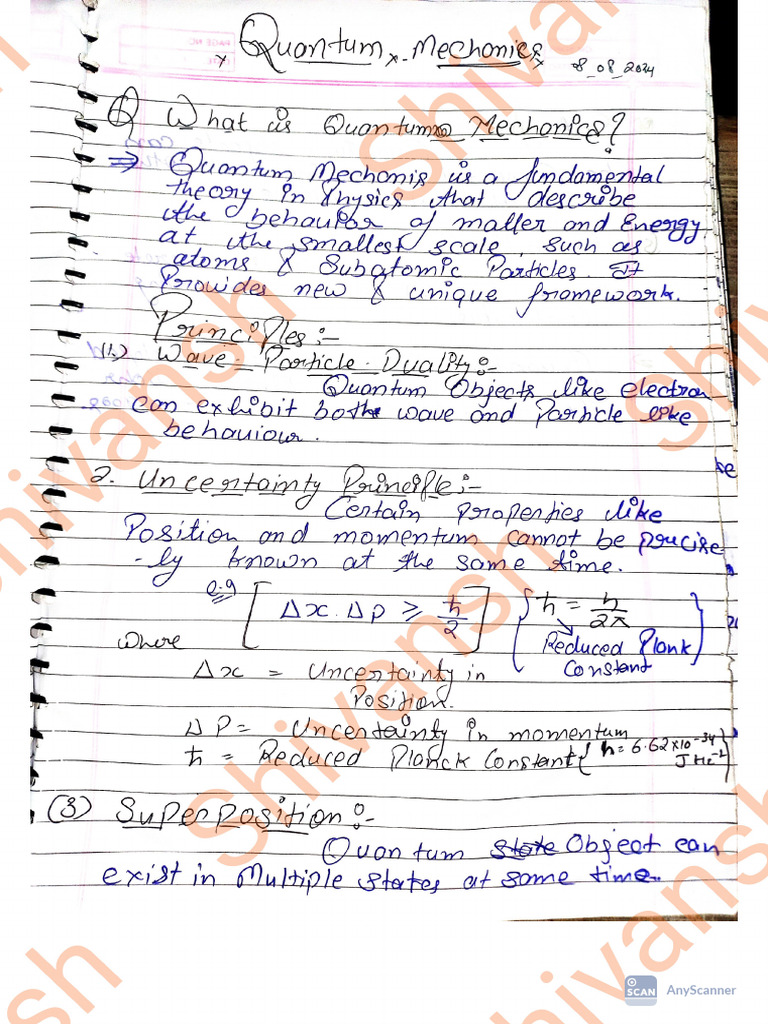 Quantum Mechanics
8_08_2024
Q What is Quantum Mechanics?
⇒ Quantum Mechonis is a fundamental
theory in Physics that describe
the behavior of matter and Energy
at the smallest scale, such as
atoms & Subatomic Particles. It
Provides new & unique framework.
Principles:-
(1.) Wave-Particle-Duality:-
Quantum Objects like electron
can exhibit both wave and Particle like
behaviour.
2. Uncertainty Principle:-
Certain properties like
Position and momentum cannot be precise
-ly known at the same time.
e.g [Δx.Δp ≥ ħ/2] {ħ = h/2π
Reduced Plank
Constant}
where
Δx = Uncertainty in
Position.
ΔP = Uncertainty in momentum
ħ = Reduced Planck Constant {h = 6.62×10⁻³⁴
J Hz⁻¹}
(3) Superposition:-
Quantum state Object can
exist in Multiple states at same time.
Shivansh
SCAN AnyScanner